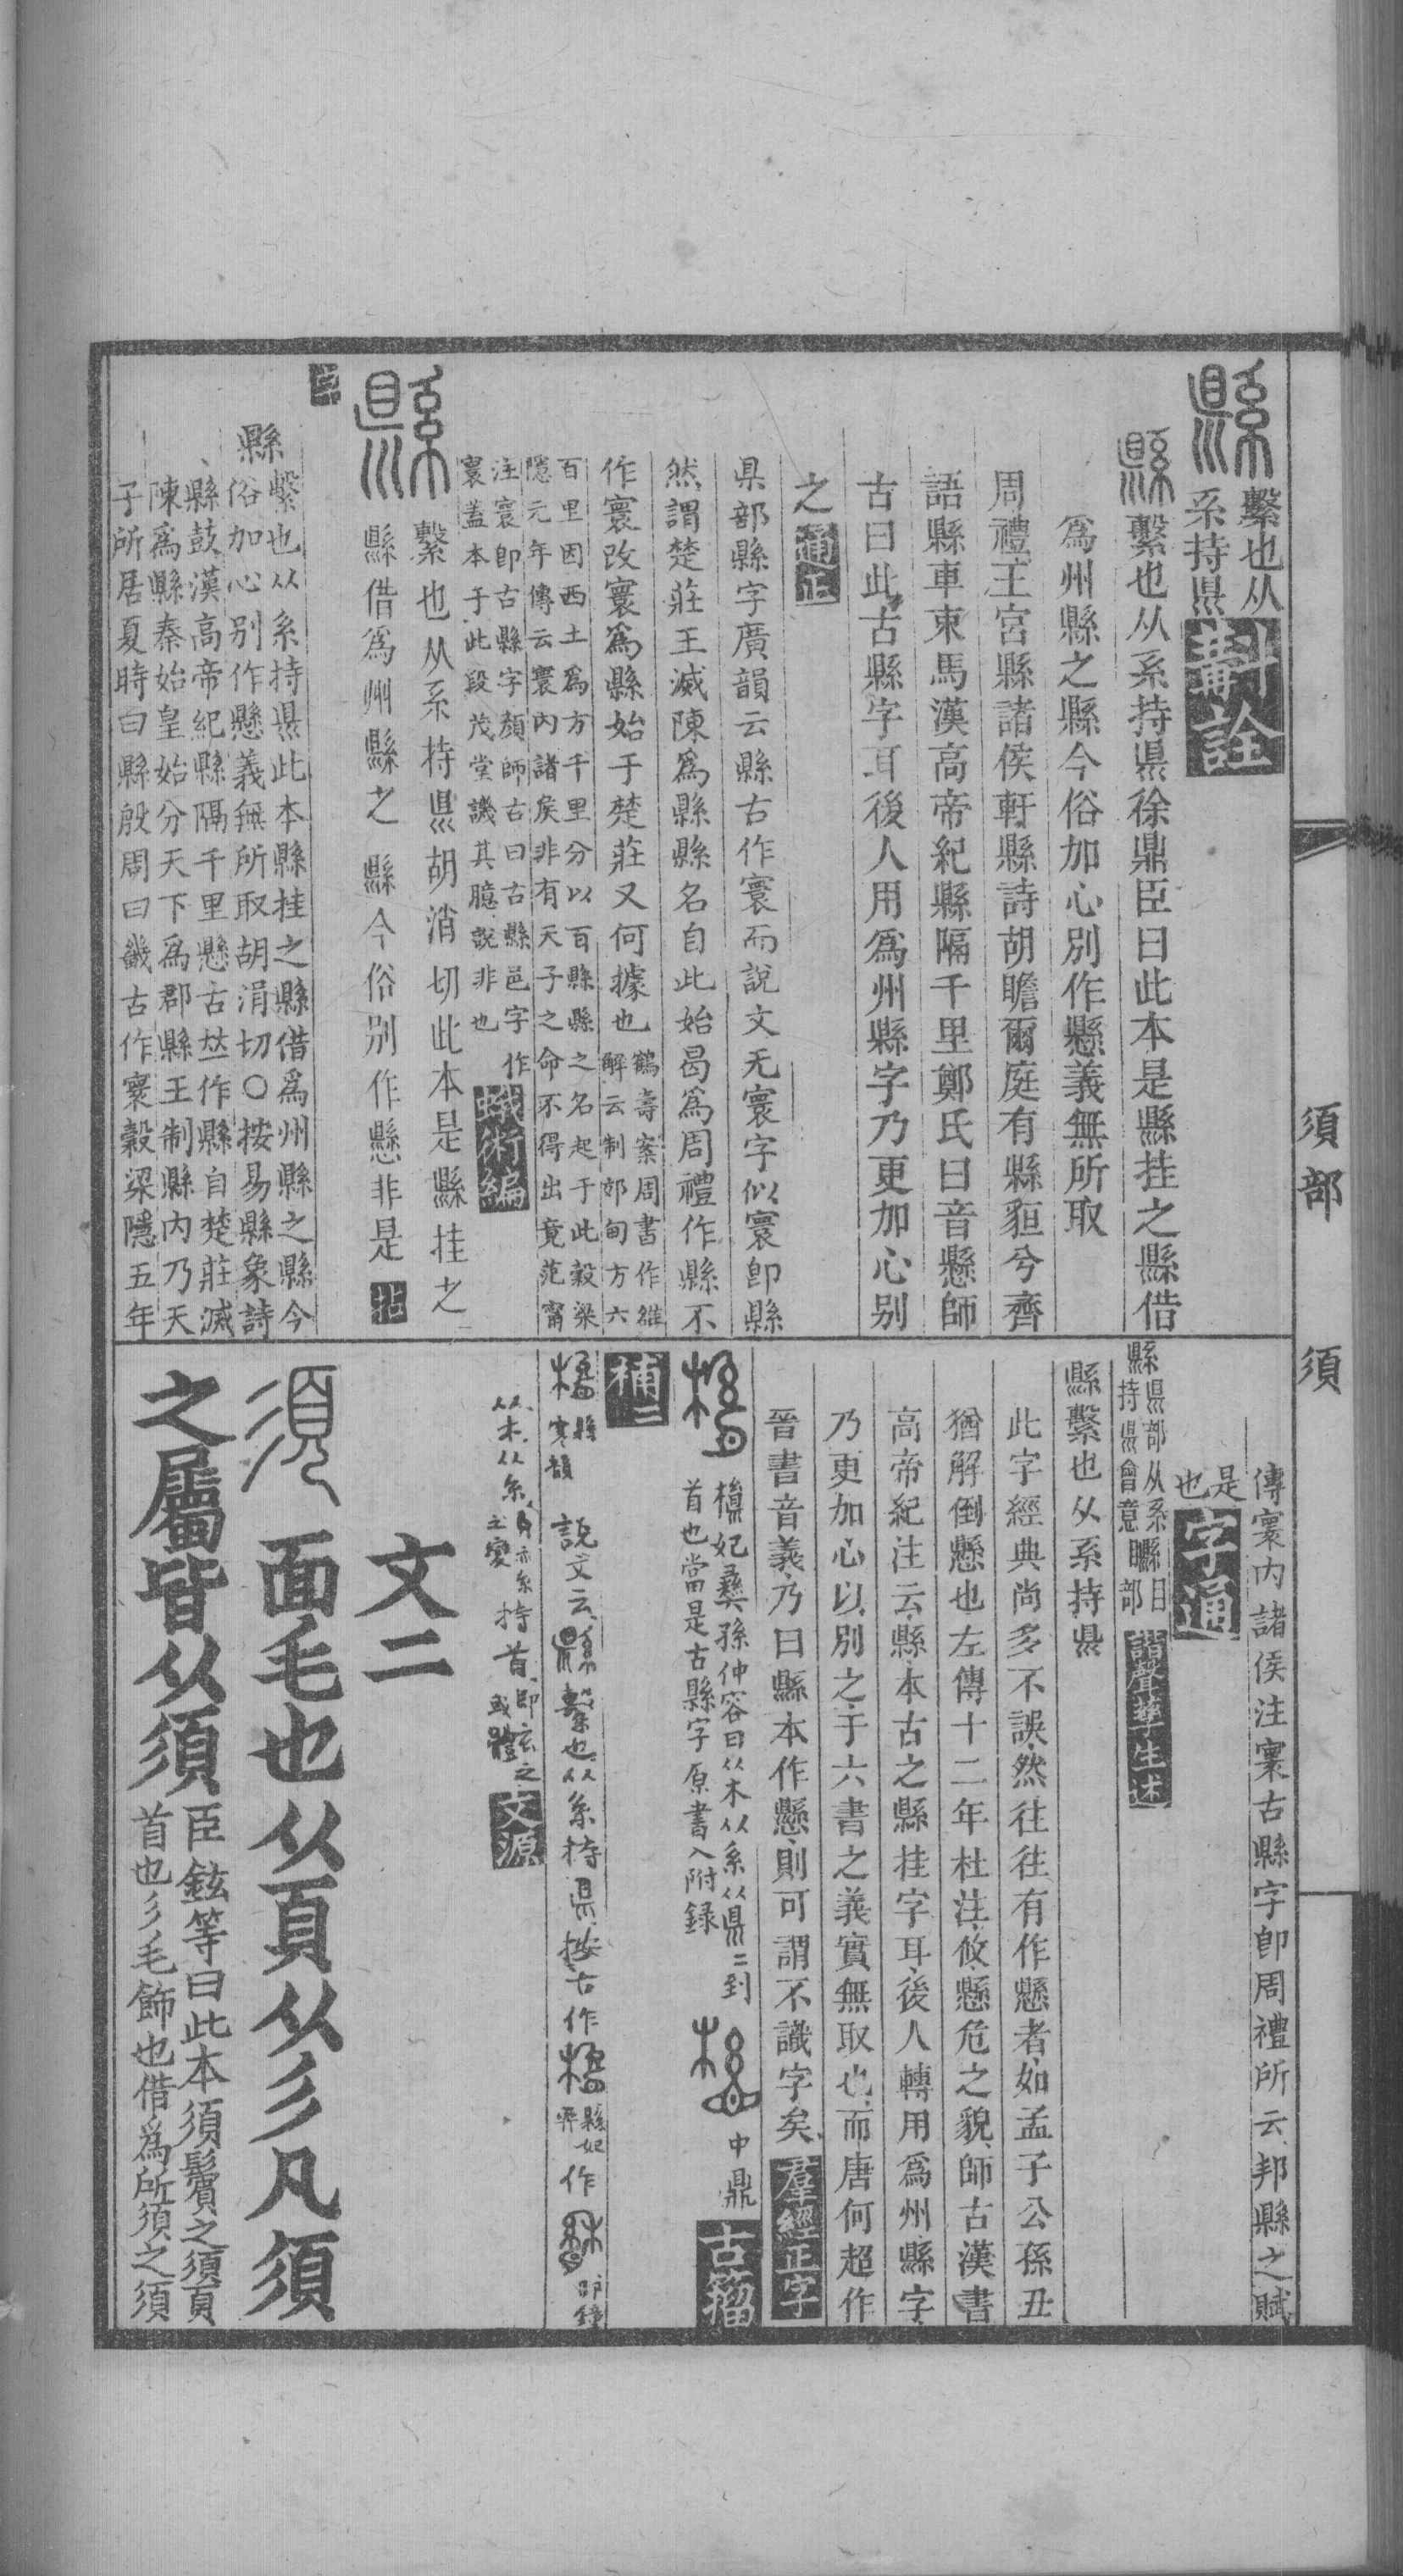 須部 須
縣
繫也从
系持𥄉
斠詮
縣 繫也从系持𥄉徐鼎臣曰此本是縣挂之縣借
爲州縣之縣今俗加心別作懸義無所取
周禮王宮縣諸侯軒縣詩胡瞻爾庭有縣貆兮齊
語縣車束馬漢高帝紀縣隔千里鄭氏曰音懸師
古曰此古縣字耳後人用爲州縣字乃更加心別
之 通正
県部縣字廣韻云縣古作寰而說文无寰字似寰卽縣
然謂楚莊王滅陳爲縣縣名自此始曷爲周禮作縣不
作寰改寰爲縣始于楚莊又何據也
鶴壽案周書作雒
解云制郊甸方六
百里因西土爲方千里分以百縣縣之名起于此穀梁
隱元年傳云寰內諸侯非有天子之命不得出竟范甯
注寰卽古縣字顏師古曰古縣邑字作
寰蓋本于此段茂堂譏其臆說非也
蛾術編
縣 繫也从系持𥄉胡消切此本是縣挂之
縣借爲州縣之縣今俗別作懸非是 拈
縣
繫也从系持𥄉此本縣挂之縣借爲州縣之縣今
俗加心別作懸義無所取胡涓切○按易縣象詩
縣鼓漢高帝紀縣隔千里懸古𠀤作縣自楚莊滅
陳爲縣秦始皇始分天下爲郡縣王制縣內乃天
子所居夏時曰縣殷周曰畿古作寰穀梁隱五年
傳寰內諸侯注寰古縣字卽周禮所云邦縣之賦
是
也
字通
縣
県部从系
持𥄉會意
諧聲孳生述
縣繫也从系持𥄉
此字經典尚多不誤然往往有作懸者如孟子公孫丑
猶解倒懸也左傳十二年杜注攸懸危之貌師古漢書
高帝紀注云縣本古之縣挂字耳後人轉用爲州縣字
乃更加心以別之于六書之義實無取也而唐何超作
晉書音義乃曰縣本作懸則可謂不識字矣 羣經正字
㯕妃彝孫仲容曰从木从系从𥄉𥄉到
首也當是古縣字原書入附錄
中鼎 古籀
補二
縣
寒韻
說文云縣繫也从系持県按古作
縣妃
彝
作
邵鐘
从木从系
持首
或體
文源
文二
須 面毛也从頁从彡凡須
之屬皆从須
臣鉉等曰此本須鬢之須頁
首也彡毛飾也借爲所須之須